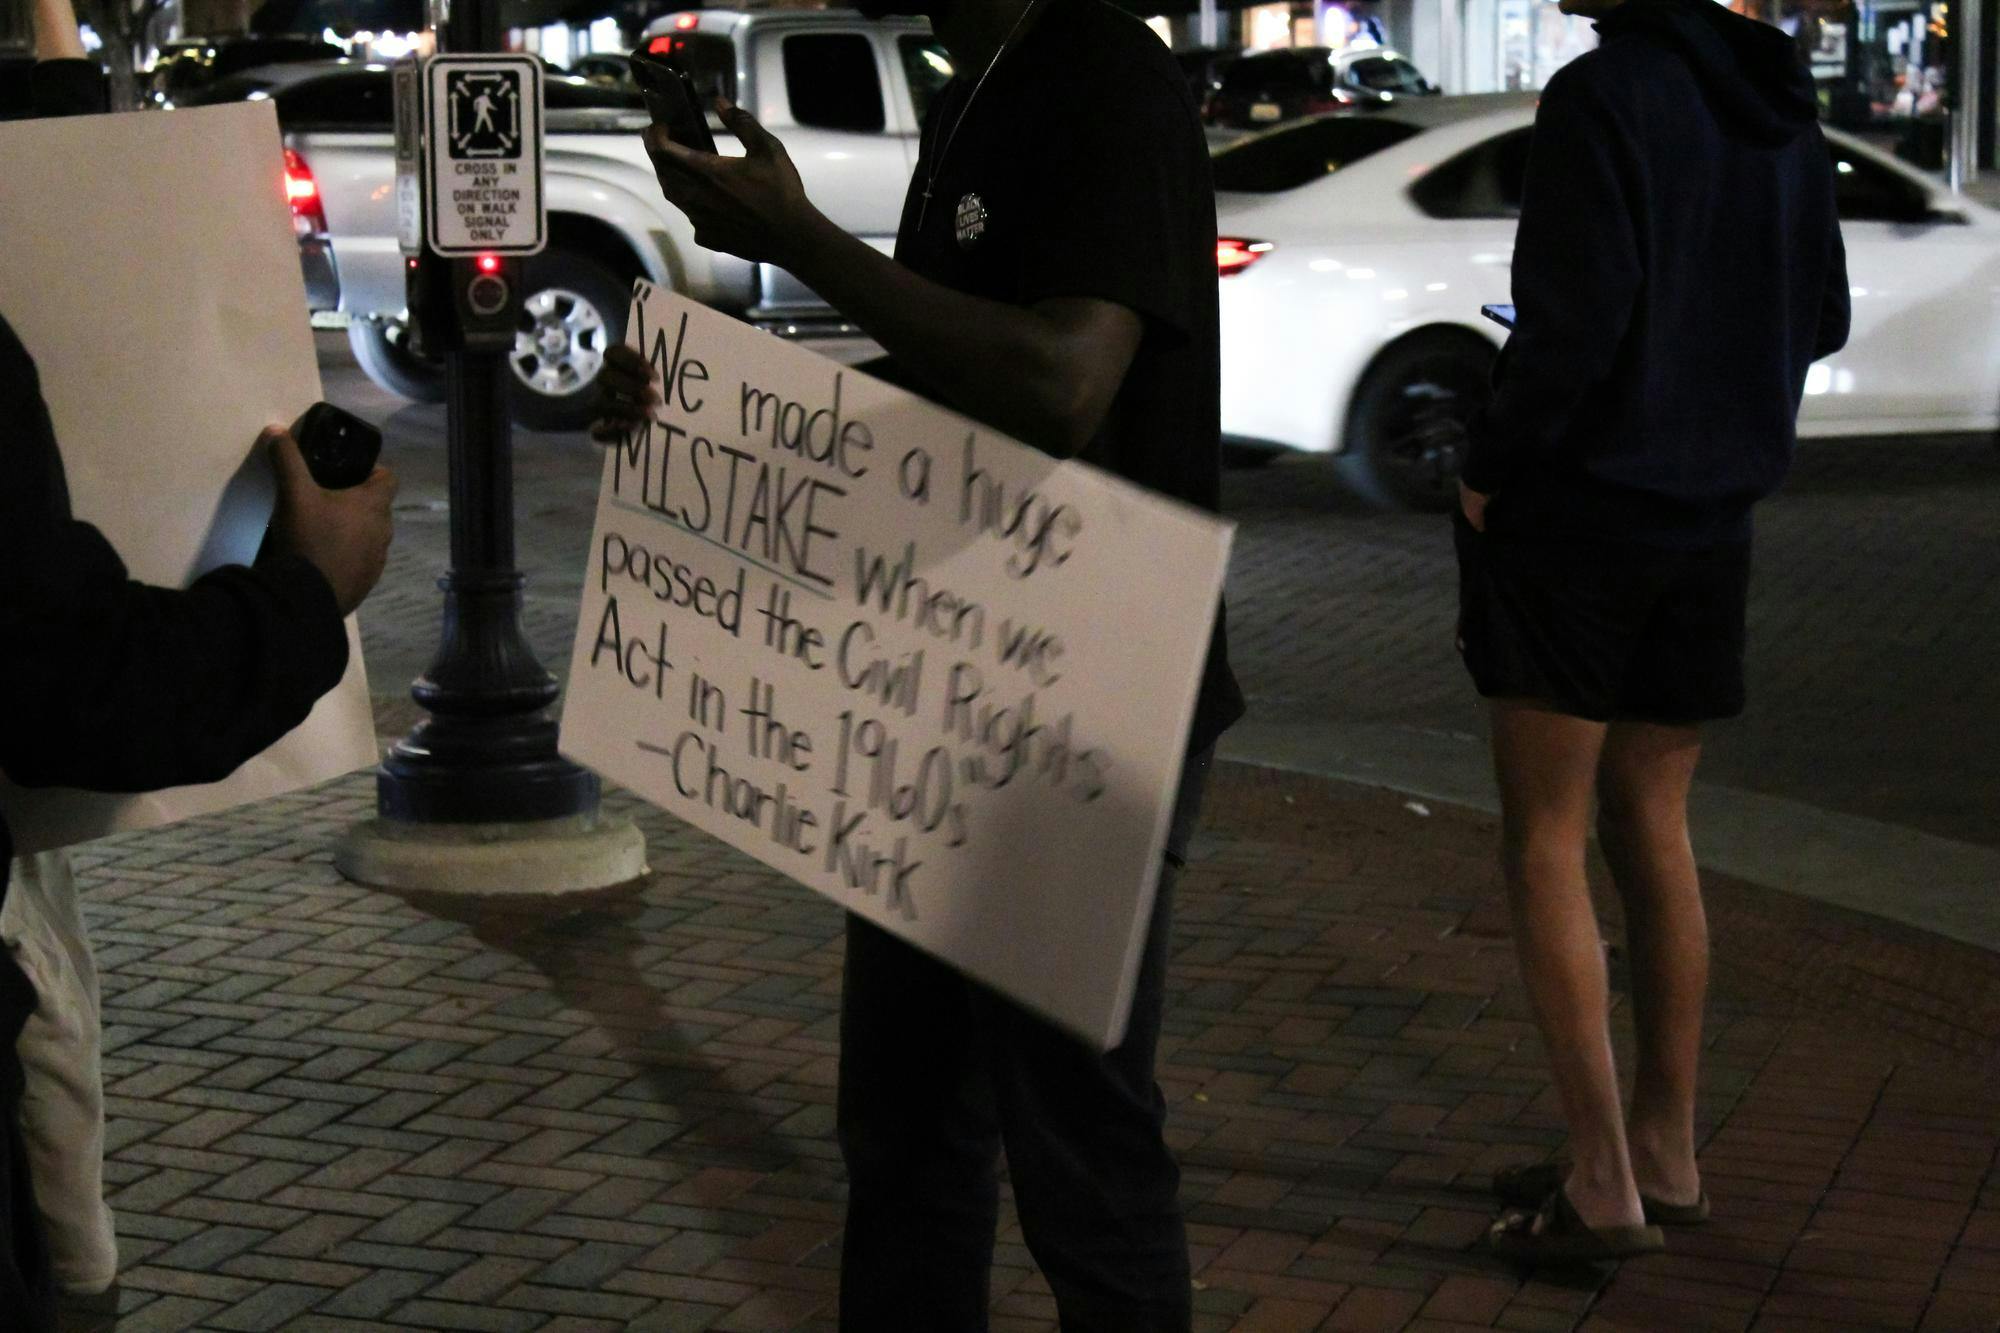 CROSS IN
ANY
DIRECTION
ON WALK
SIGNAL
ONLY
BLACK
LIVES
MATTER
"We made a huge
MISTAKE when we
passed the Civil Rights
Act in the 1960s"
—Charlie Kirk